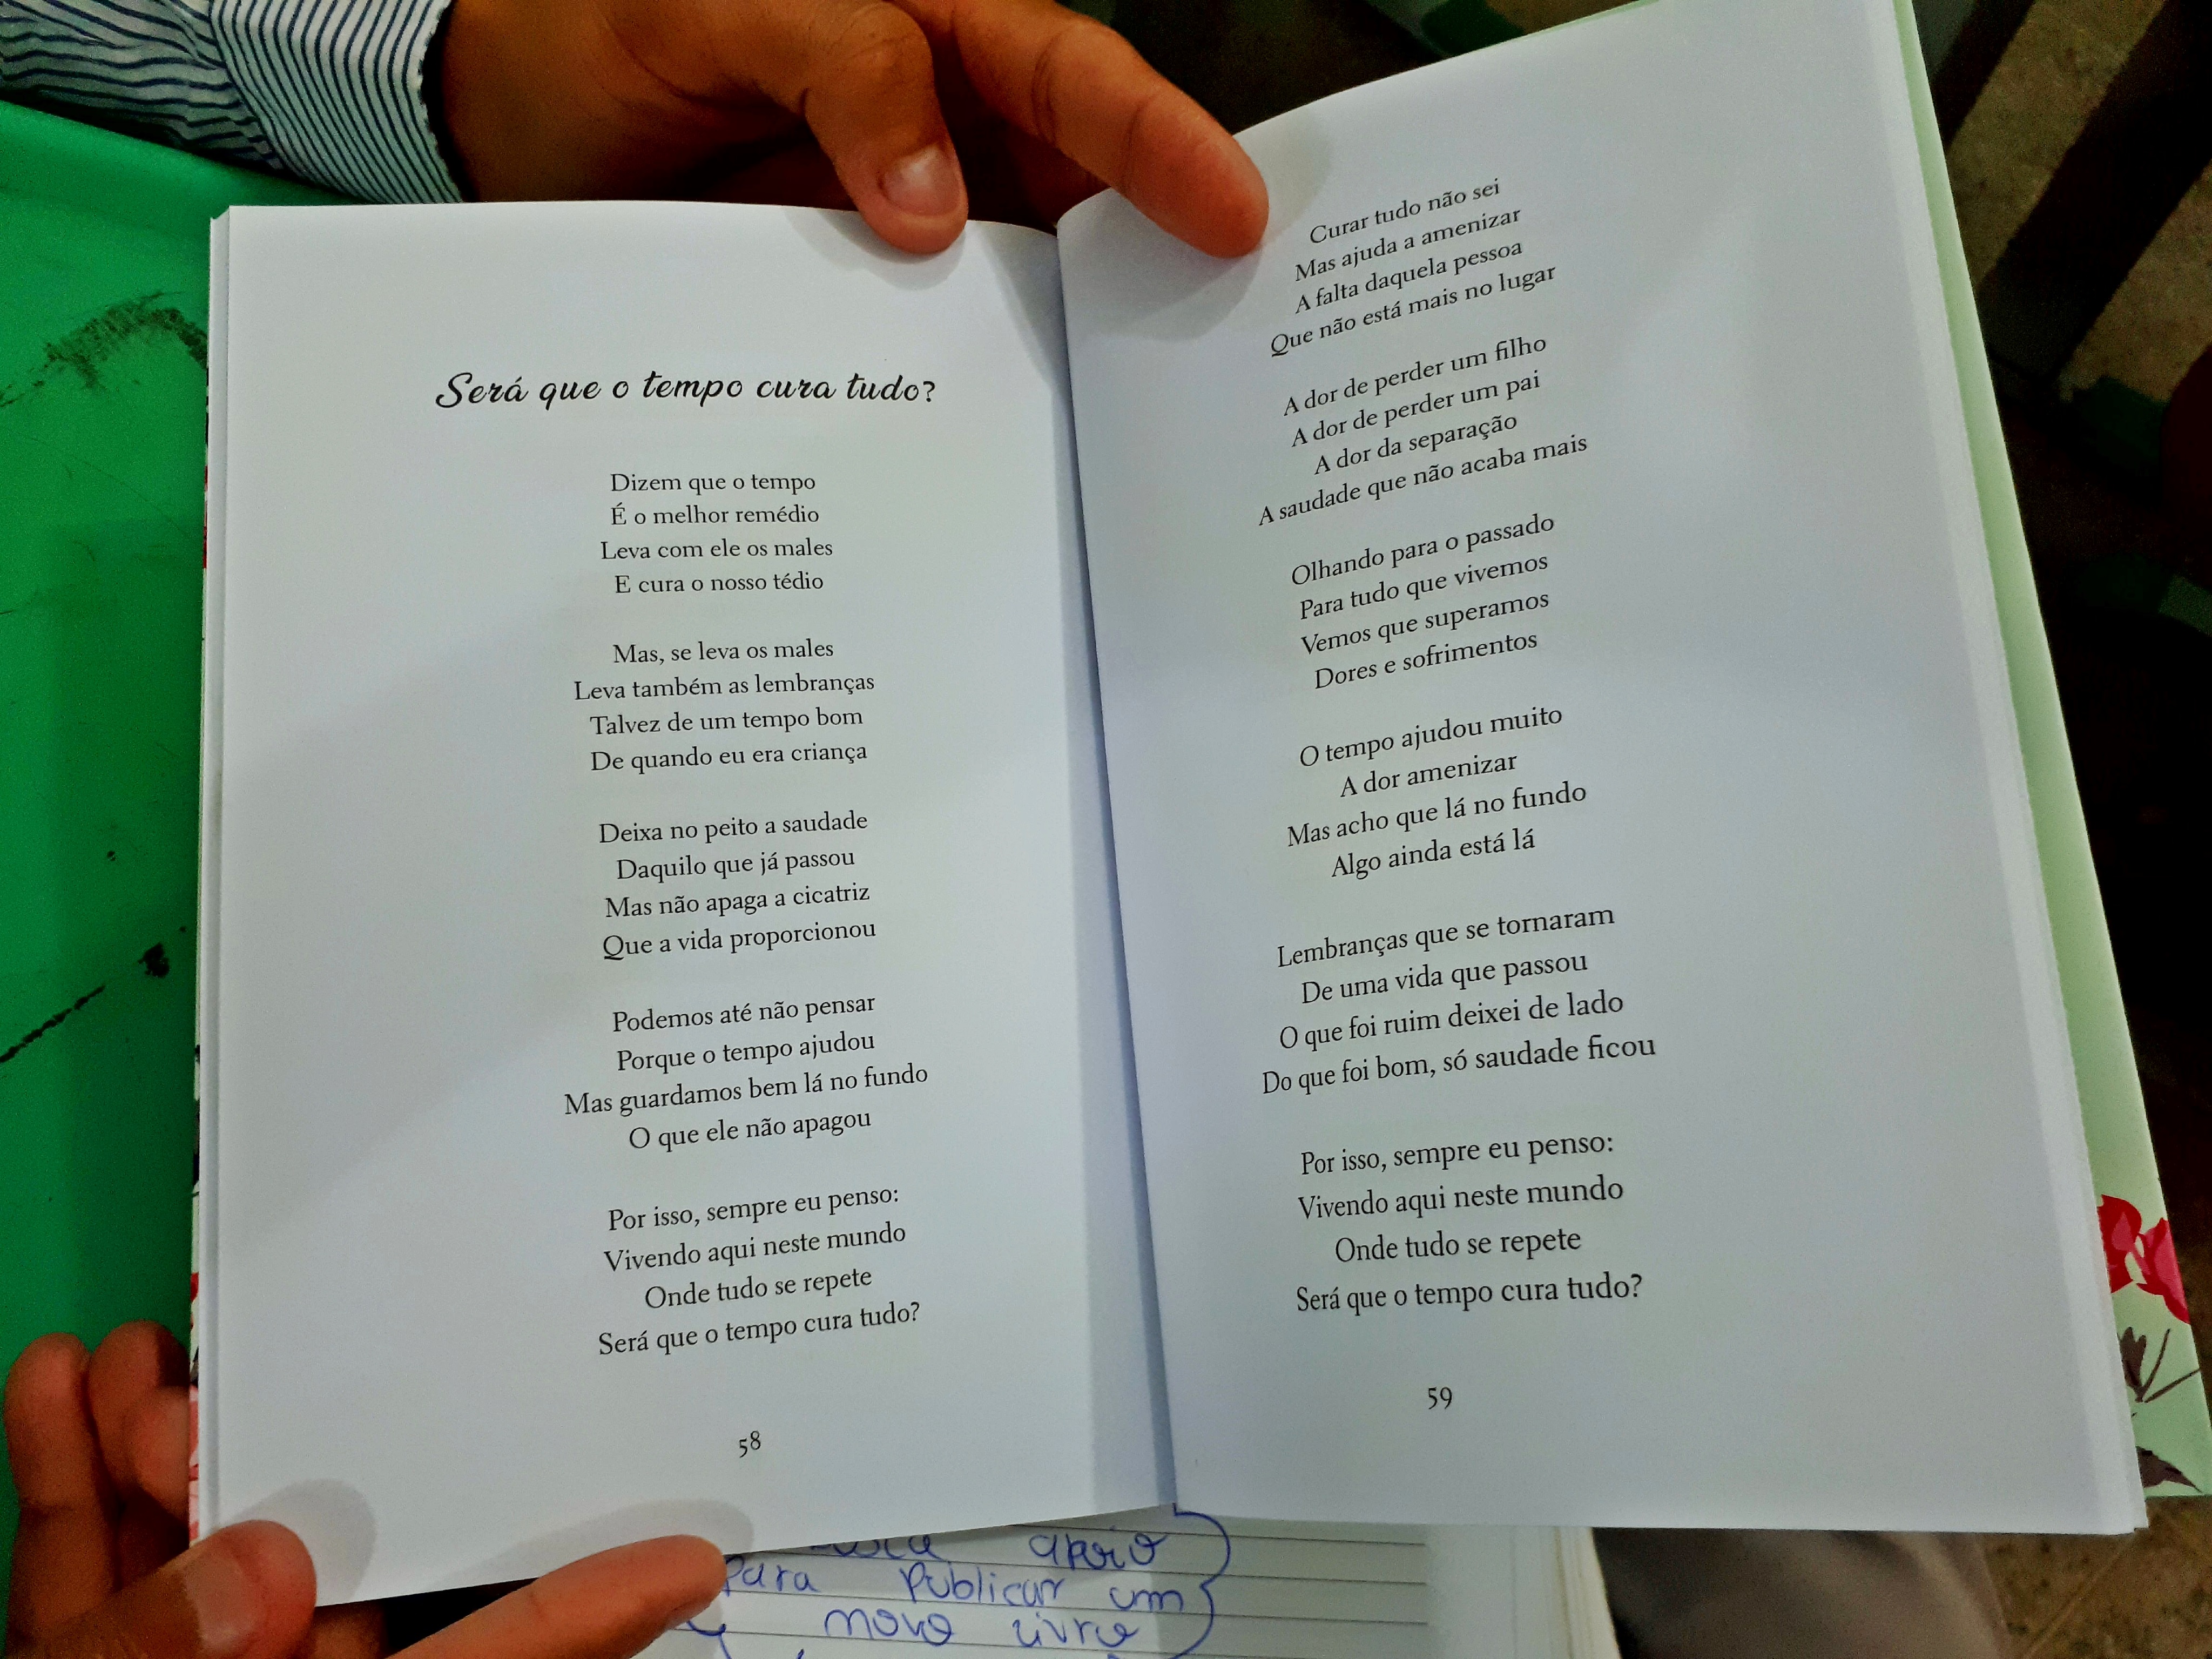 Será que o tempo cura tudo?
Dizem que o tempo
É o melhor remédio
Leva com ele os males
E cura o nosso tédio
Mas, se leva os males
Leva também as lembranças
Talvez de um tempo bom
De quando eu era criança
Deixa no peito a saudade
Daquilo que já passou
Mas não apaga a cicatriz
Que a vida proporcionou
Podemos até não pensar
Porque o tempo ajudou
Mas guardamos bem lá no fundo
O que ele não apagou
Por isso, sempre eu penso:
Vivendo aqui neste mundo
Onde tudo se repete
Será que o tempo cura tudo?
58
Curar tudo não sei
Mas ajuda a amenizar
A falta daquela pessoa
Que não está mais no lugar
A dor de perder um filho
A dor de perder um pai
A dor da separação
A saudade que não acaba mais
Olhando para o passado
Para tudo que vivemos
Vemos que superamos
Dores e sofrimentos
O tempo ajudou muito
A dor amenizar
Mas acho que lá no fundo
Algo ainda está lá
Lembranças que se tornaram
De uma vida que passou
O que foi ruim deixei de lado
Do que foi bom, só saudade ficou
Por isso, sempre eu penso:
Vivendo aqui neste mundo
Onde tudo se repete
Será que o tempo cura tudo?
59
apoio
para publicar um
novo livro